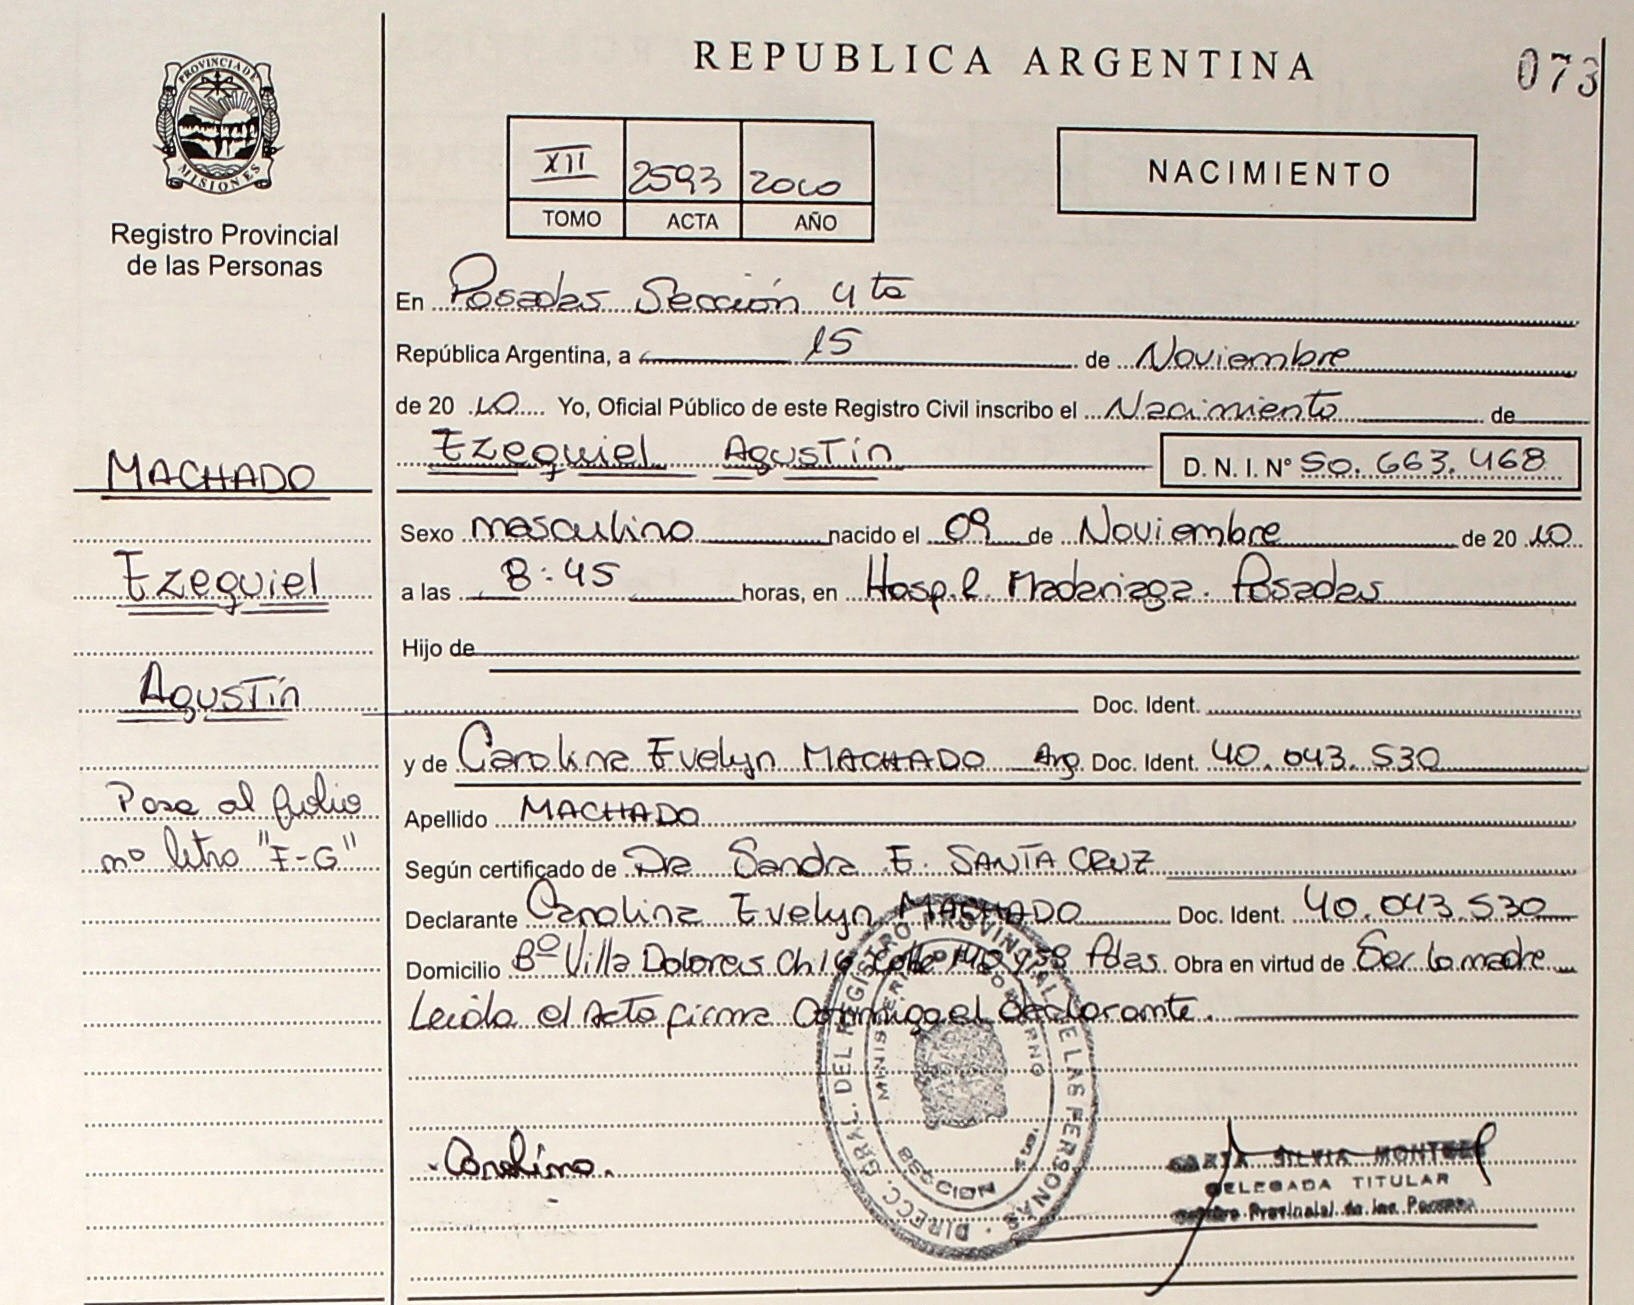 REPUBLICA ARGENTINA
073
PROVINCIA DE
MISIONES
Registro Provincial
de las Personas
XII 2593 2010
TOMO ACTA AÑO
NACIMIENTO
En Posadas Sección 4ta
República Argentina, a 15 de Noviembre
de 2010 Yo, Oficial Público de este Registro Civil inscribo el Nacimiento de
Ezequiel Agustín D. N. I. Nº 50.663.468
MACHADO
Ezequiel
Agustín
Pase al folio
nº letra "F-G"
Sexo masculino nacido el 09 de Noviembre de 2010
a las 8:45 horas, en Hosp.R. Madariaga. Posadas
Hijo de
Doc. Ident.
y de Carolina Evelyn MACHADO Arg. Doc. Ident. 40.043.530
Apellido MACHADO
Según certificado de Dra Sandra E. SANTA CRUZ
Declarante Carolina Evelyn MACHADO Doc. Ident. 40.043.530
Domicilio Bº Villa Dolores Ch16 Calle 140 Pdas. Obra en virtud de Ser la madre
Leída el Acta firma Conmigo el declarante.
Carolina.
DIRECC. GRAL. DEL REGISTRO PROVINCIAL DE LAS PERSONAS
SILVIA
DELEGADA TITULAR
Provincial de las Personas